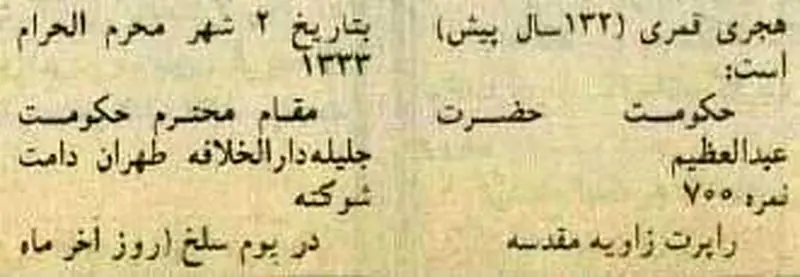 هجری قمری (۱۳۲سال پیش)
است:
حکومت حضرت
عبدالعظیم
نمره ۷۰۰
راپرت زاویه مقدسه
بتاریخ ۲ شهر محرم الحرام
۱۳۳۳
مقام محترم حکومت
جلیله‌دارالخلافه طهران دامت
شوکته
در یوم سلخ (روز آخر ماه